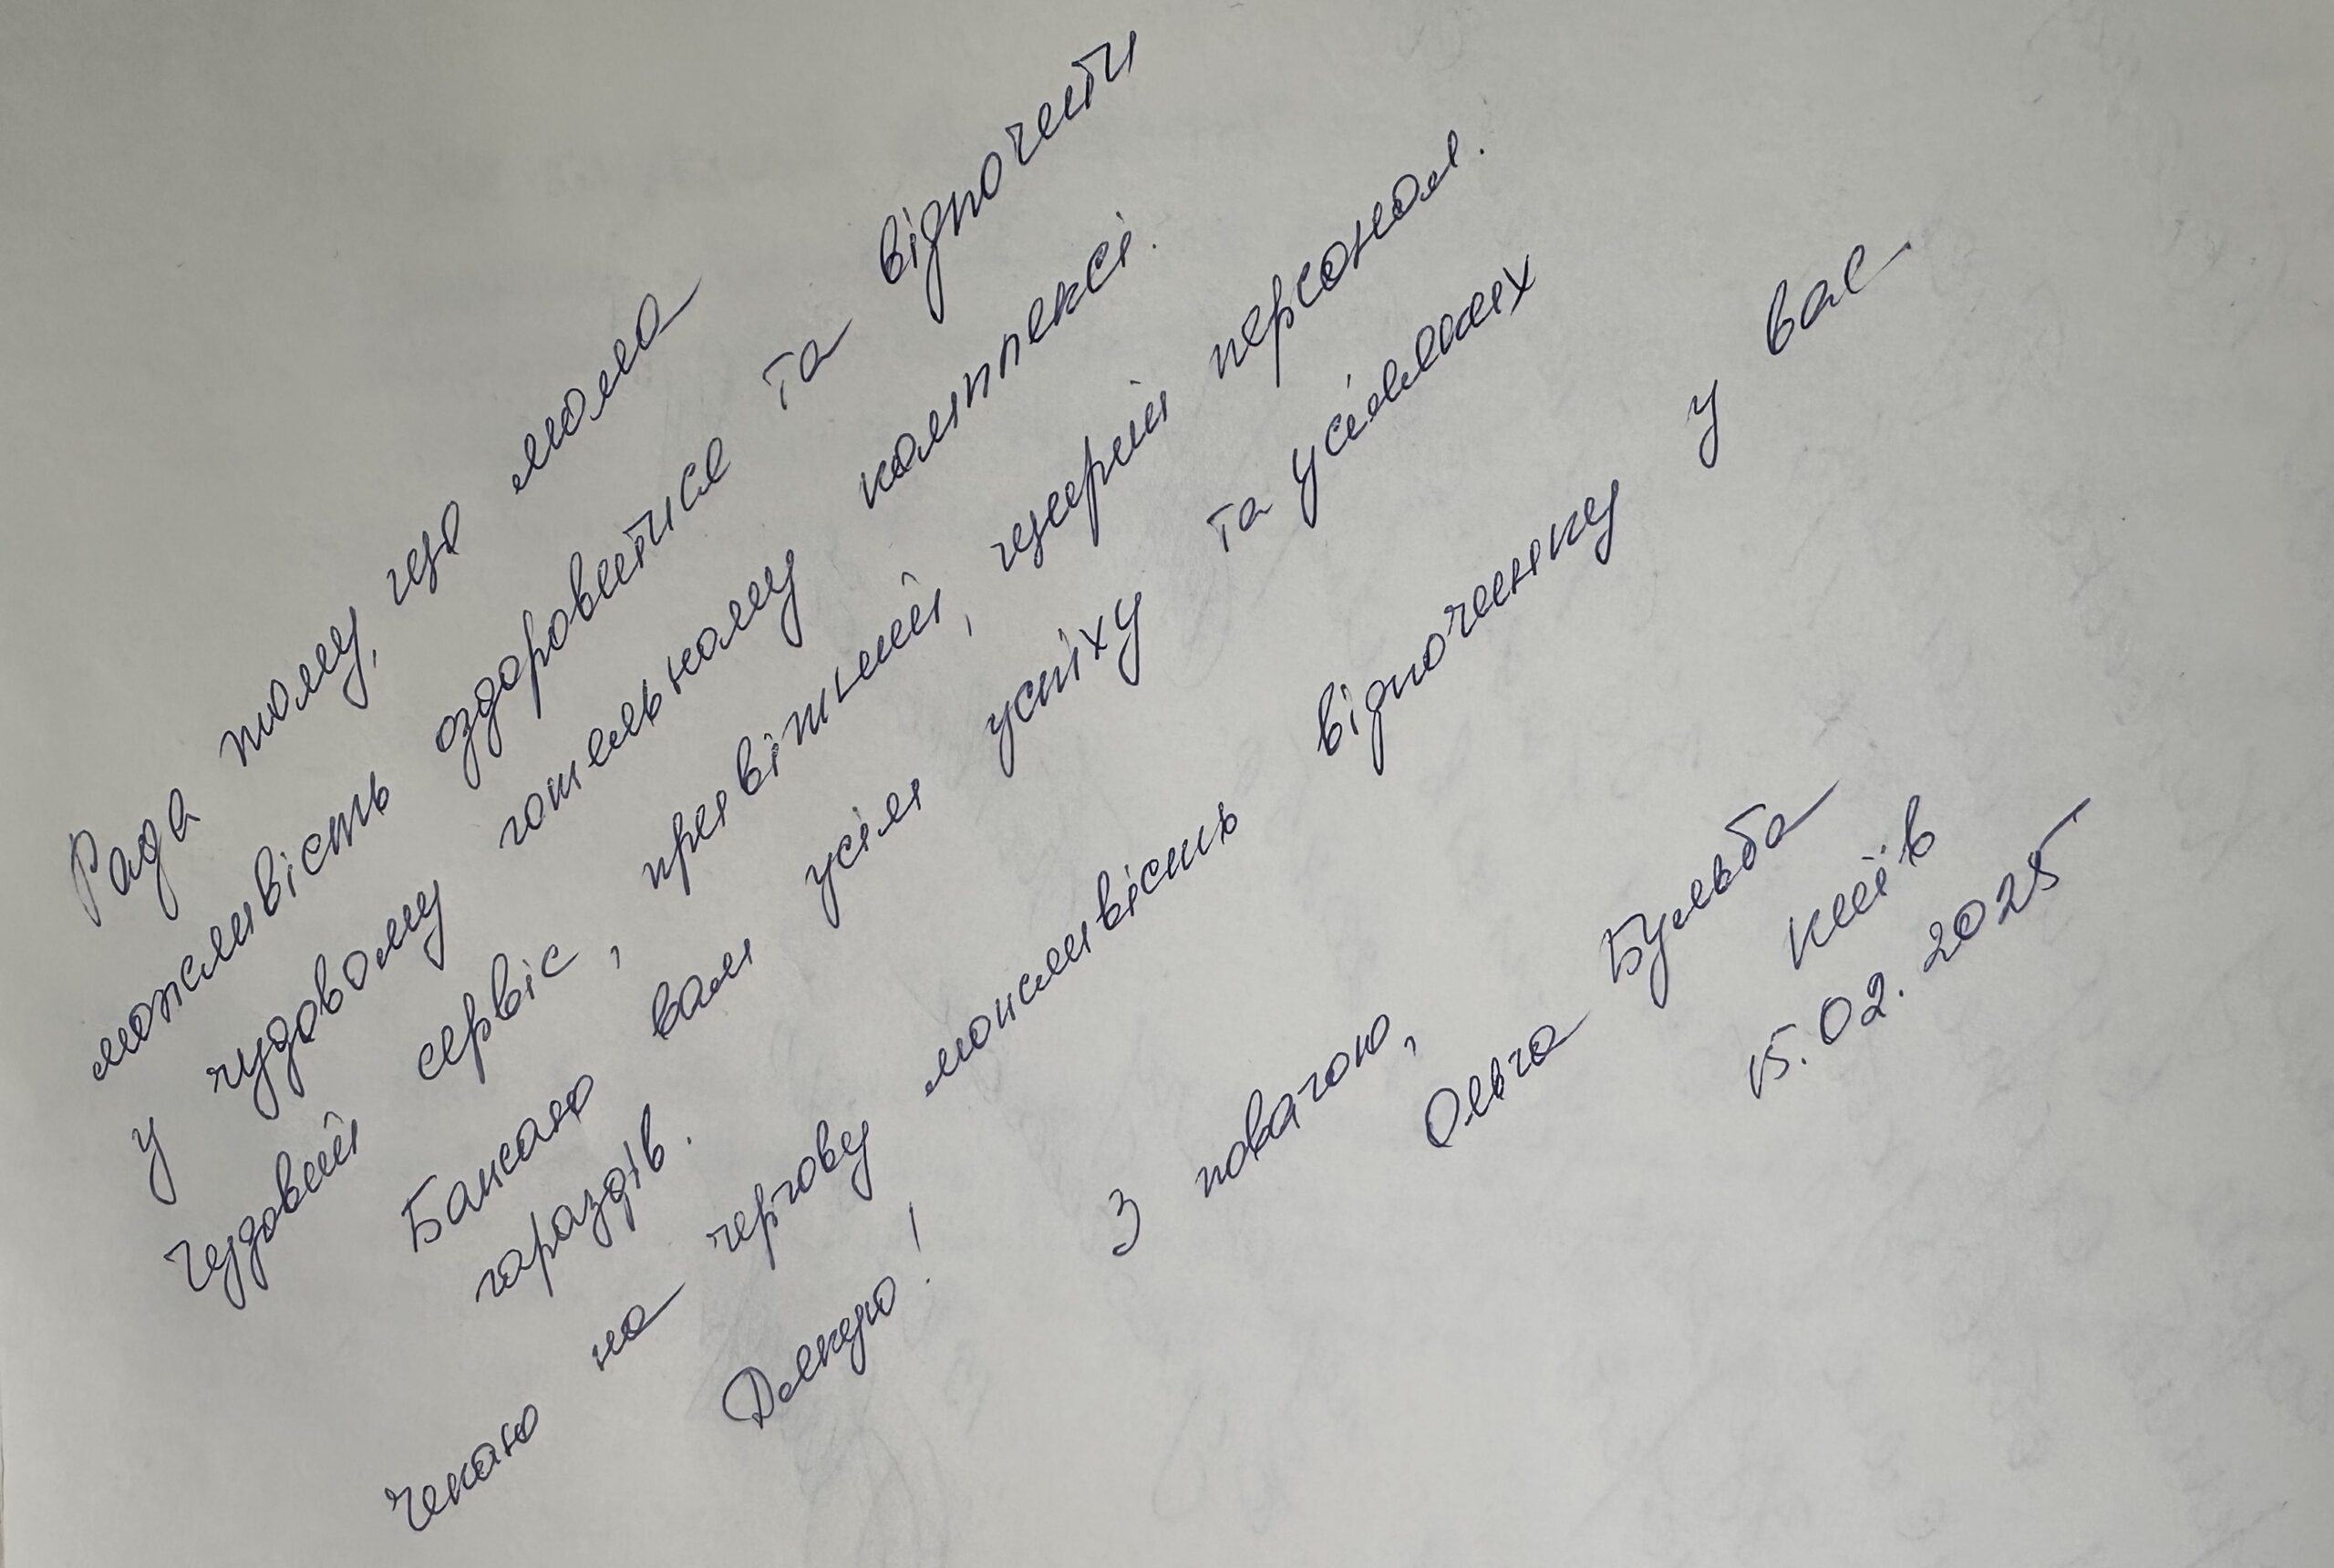 Рада тому, що мала
можливість оздоровитися та відпочити
у чудовому готельному комплексі.
Чудовий сервіс, привітний, щирий персонал.
Бажаю вам усім успіху та усіляких
гараздів.
Чекаю на чергову можливість відпочинку у вас.
Дякую!
З повагою,
Ольга Бульба
Київ
15.02.2025